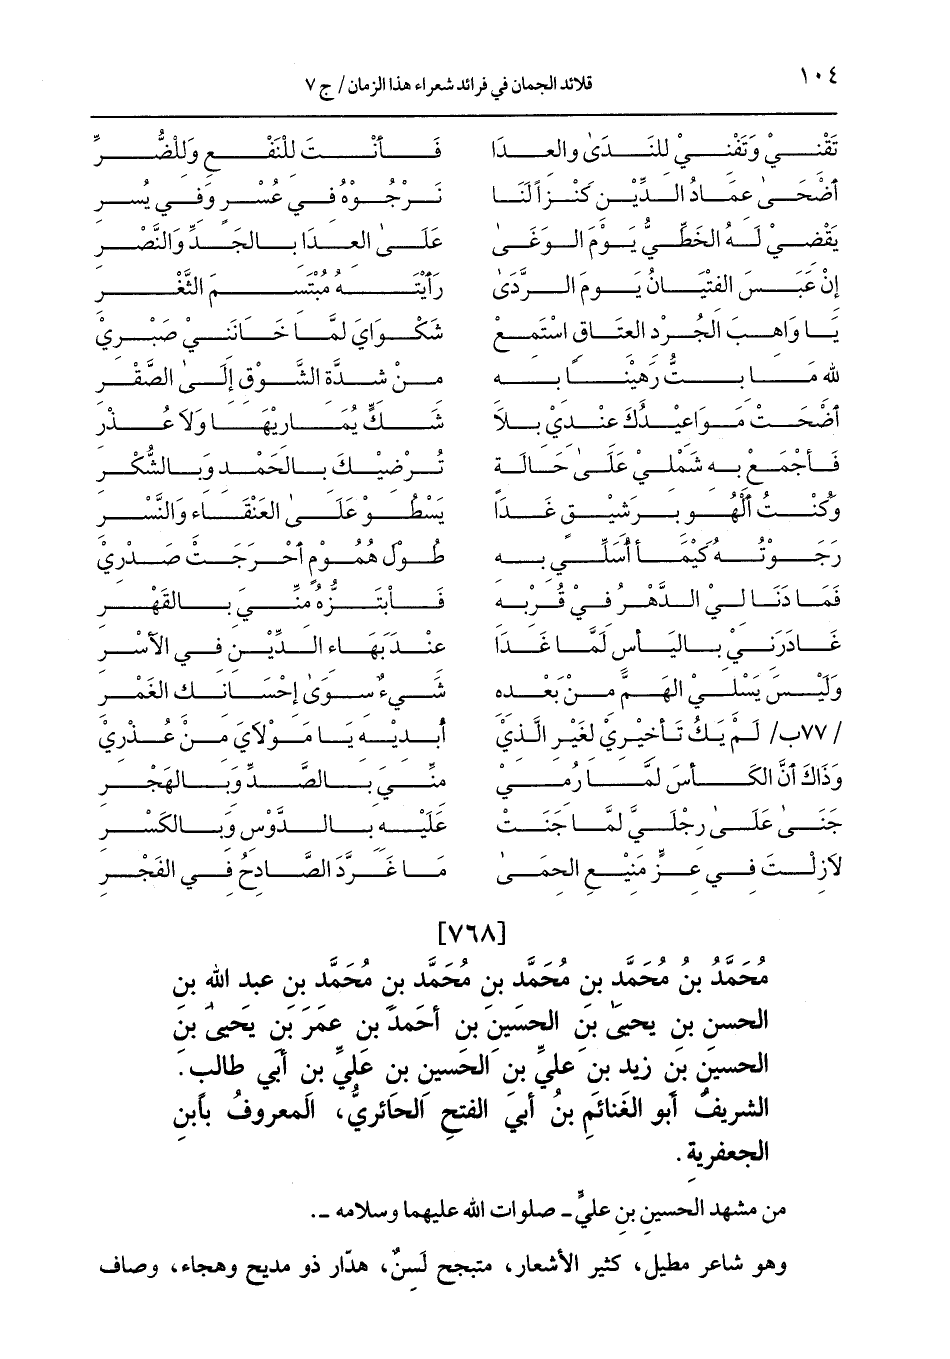 ١٠٤ قلائد الجمان في فرائد شعراء هذا الزمان/ ج٧
تَقْنِيْ وَتَفْنِيْ لِلنَدَىٰ وَالعِدَا فَأَنْتَ لِلْنَفْعِ وَلِلْضُّرِّ
أَضْحَىٰ عِمَادُ الدِّيْنِ كَنْزاً لَنَا نَرْجُوْهُ فِي عُسْرٍ وَفِي يُسْرِ
يَقْضِيْ لَهُ الخَطِّيُّ يَوْمَ الوَغَىٰ عَلَىٰ العِدَا بِالجَدِّ وَالنَّصْرِ
إِنْ عَبَسَ الفِتْيَانُ يَوْمَ الرَّدَىٰ رَأَيْتَهُ مُبْتَسِمَ الثَّغْرِ
يَا وَاهِبَ الجُرْدِ العِتَاقِ اسْتَمِعْ شَكْوَايَ لَمَّا خَانَنِي صَبْرِيْ
لله مَا بِتُّ رَهِيْناً بِهِ مِنْ شِدَّةِ الشَّوْقِ إِلَىٰ الصَّقْرِ
أَضْحَتْ مَوَاعِيْدُكَ عِنْدِيْ بِلاَ شَكٍّ يُمَارِيْهَا وَلاَ عُذْرِ
فَأَجْمَعْ بِهِ شَمْلِيْ عَلَىٰ حَالَةٍ تُرْضِيْكَ بِالحَمْدِ وَبِالشُّكْرِ
وَكُنْتُ أَلْهُو بِرَشِيْقٍ غَدَا يَسْطُو عَلَىٰ العَنْقَاءِ وَالنَّسْرِ
رَجَوْتُهُ كَيْمَا أُسَلِّي بِهِ طُوْلَ هُمُوْمٍ أَحْرَجَتْ صَدْرِيْ
فَمَا دَنَا لِيْ الدَّهْرُ فِيْ قُرْبِهِ فَأبْتَزَّهُ مِنِّيَ بِالقَهْرِ
غَادَرَنِيْ بِاليَأْسِ لَمَّا غَدَا عِنْدَ بَهَاءِ الدِّيْنِ فِي الأَسْرِ
وَلَيْسَ يُسْلِي الهَمَّ مِنْ بَعْدِهِ شَيْءٌ سِوَىٰ إِحْسَانِكَ الغَمْرِ
/ ٧٧ب/ لَمْ يَكُ تَأْخِيْرِيْ لِغَيْرِ الَّذِيْ أُبْدِيْهِ يَا مَوْلاَيَ مِنْ عُذْرِيْ
وَذَاكَ أَنَّ الكَأْسَ لَمَّا رُمِيْ مِنِّيَ بِالصَّدِّ وَبِالهَجْرِ
جَنَىٰ عَلَىٰ رِجْلِيْ لَمَّا جَنَتْ عَلَيْهِ بِالدَّوْسِ وَبِالكَسْرِ
لاَزِلْتَ فِي عِزٍّ مَنِيْعِ الحِمَىٰ مَا غَرَّدَ الصَّادِحُ فِي الفَجْرِ
[٧٦٨]
مُحَمَّدُ بنُ مُحَمَّدِ بنِ مُحَمَّدِ بنِ مُحَمَّدِ بنِ مُحَمَّدِ بنِ عبد الله بنِ
الحسنِ بنِ يحيىٰ بنِ الحسينِ بنِ أحمدَ بنِ عمرَ بنِ يحيىٰ بنِ
الحسينِ بنِ زيد بنِ عليِّ بنِ الحسين بنِ عليِّ بنِ أبي طالب.
الشريفُ أبو الغنائمِ بنُ أبي الفتحِ الحائريُّ، المعروفُ بأبنِ
الجعفريةِ.
من مشهد الحسين بن عليٍّ ـ صلوات الله عليهما وسلامه ـ.
وهو شاعر مطيل، كثير الأشعار، متبجح لَسِنٌ، هدّار ذو مديح وهجاء، وصاف